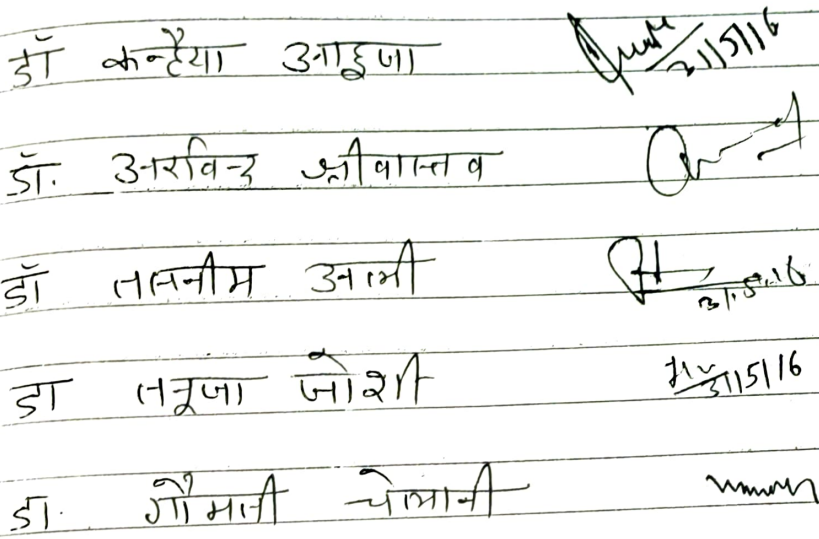 डॉ कन्हैया आहूजा 31/5/16
डॉ. अरविन्द श्रीवास्तव
डॉ तसनीम अली 31.5.16
डा तनूजा जोशी 31/5/16
डा. गौमती